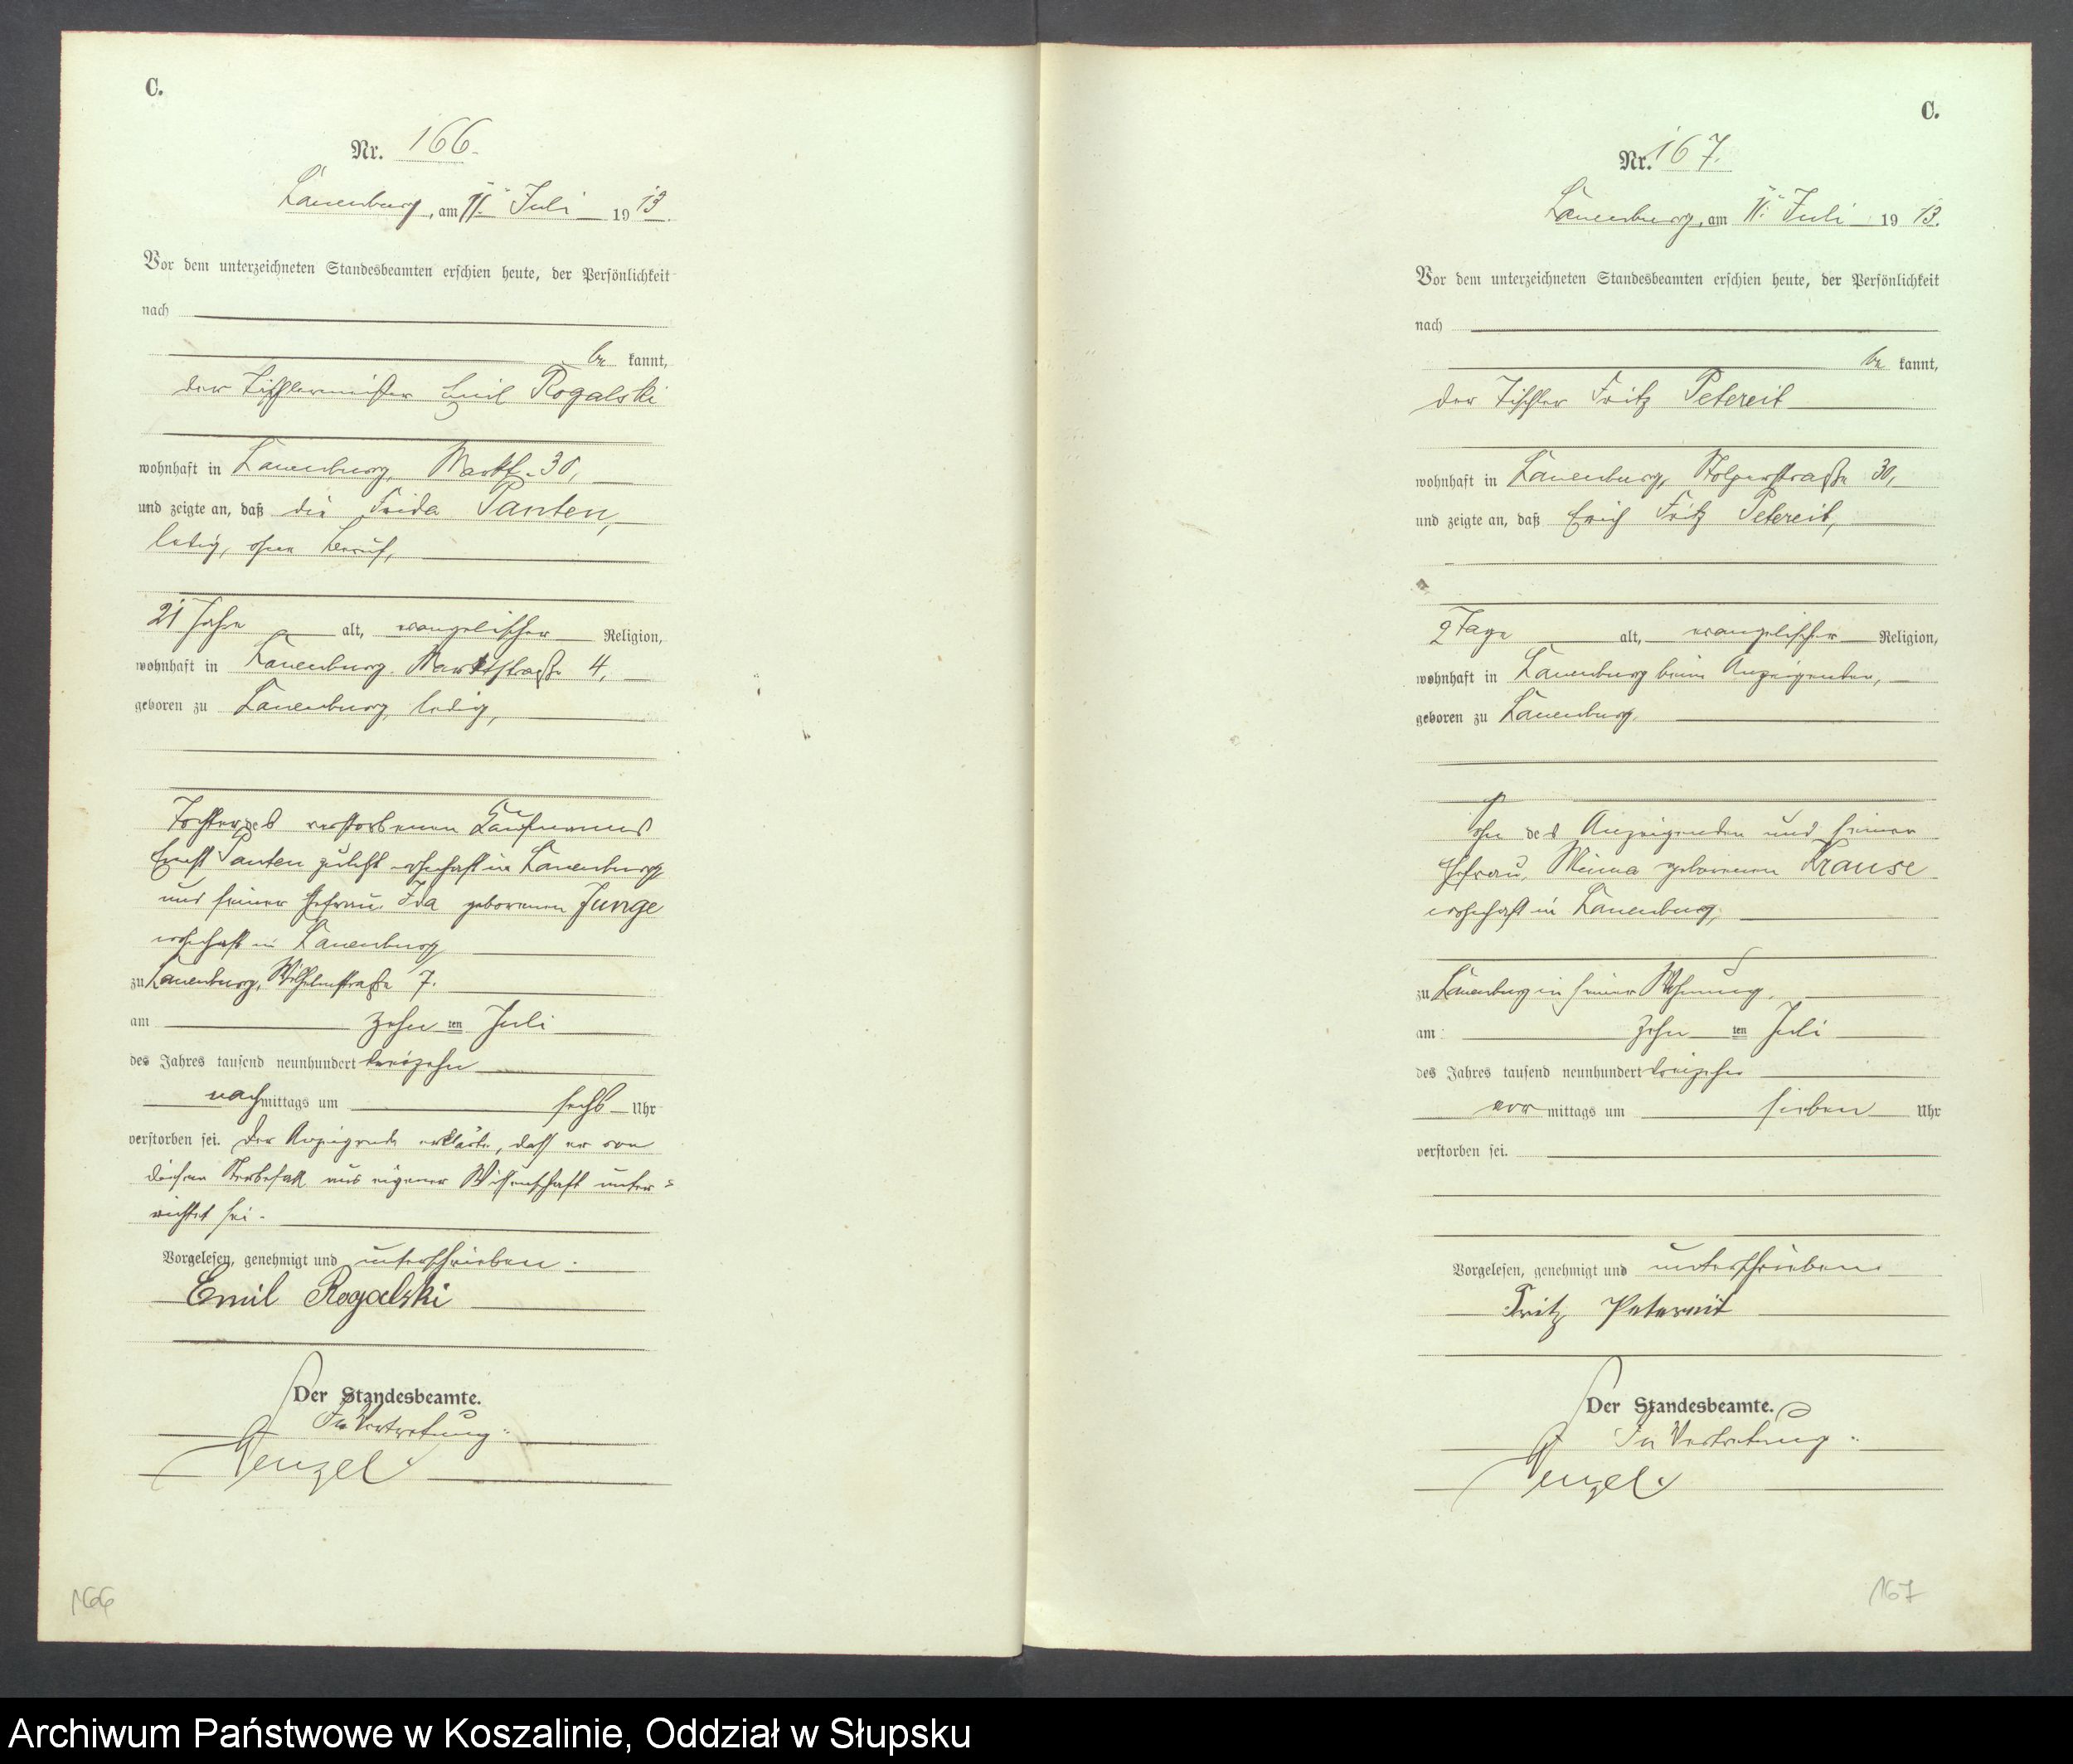 C.
Nr. 166.
Lauenburg, am 11. Juli 1913.
Vor dem unterzeichneten Standesbeamten erschien heute, der Persönlichkeit
nach
be kannt,
der Tischlermeister Emil Rogalski
wohnhaft in Lauenburg, Marktstr. 30,
und zeigte an, daß die Frida Panten,
ledig, ohne Beruf,
21 Jahre alt, evangelischer Religion,
wohnhaft in Lauenburg Marktstraße 4,
geboren zu Lauenburg, ledig,
Tochter des verstorbenen Kaufmanns
Ernst Panten zuletzt wohnhaft in Lauenburg
und seiner Ehefrau Ida geborenen Junge
wohnhaft in Lauenburg
zu Lauenburg, Wilhelmstraße 7.
am zehn ten Juli
des Jahres tausend neunhundert dreizehn
nachmittags um sechs Uhr
verstorben sei. Der Anzeigende erklärte, daß er von
diesem Sterbefall aus eigener Wissenschaft unter=
richtet sei.
Vorgelesen, genehmigt und unterschrieben.
Emil Rogalski
Der Standesbeamte.
In Vertretung:
Wenzel.
166
C.
Nr. 167.
Lauenburg, am 11. Juli 1913.
Vor dem unterzeichneten Standesbeamten erschien heute, der Persönlichkeit
nach
be kannt,
der Tischler Fritz Petereit
wohnhaft in Lauenburg, Stolperstraße 30,
und zeigte an, daß Erich Fritz Petereit,
2 Tage alt, evangelischer Religion,
wohnhaft in Lauenburg beim Anzeigenden,
geboren zu Lauenburg,
Sohn des Anzeigenden und seiner
Ehefrau, Minna geborenen Krause
wohnhaft in Lauenburg,
zu Lauenburg in seiner Wohnung,
am zehn ten Juli
des Jahres tausend neunhundert dreizehn
vor mittags um sieben Uhr
verstorben sei.
Vorgelesen, genehmigt und unterschrieben
Fritz Petereit
Der Standesbeamte.
In Vertretung:
Wenzel.
167
Archiwum Państwowe w Koszalinie, Oddział w Słupsku